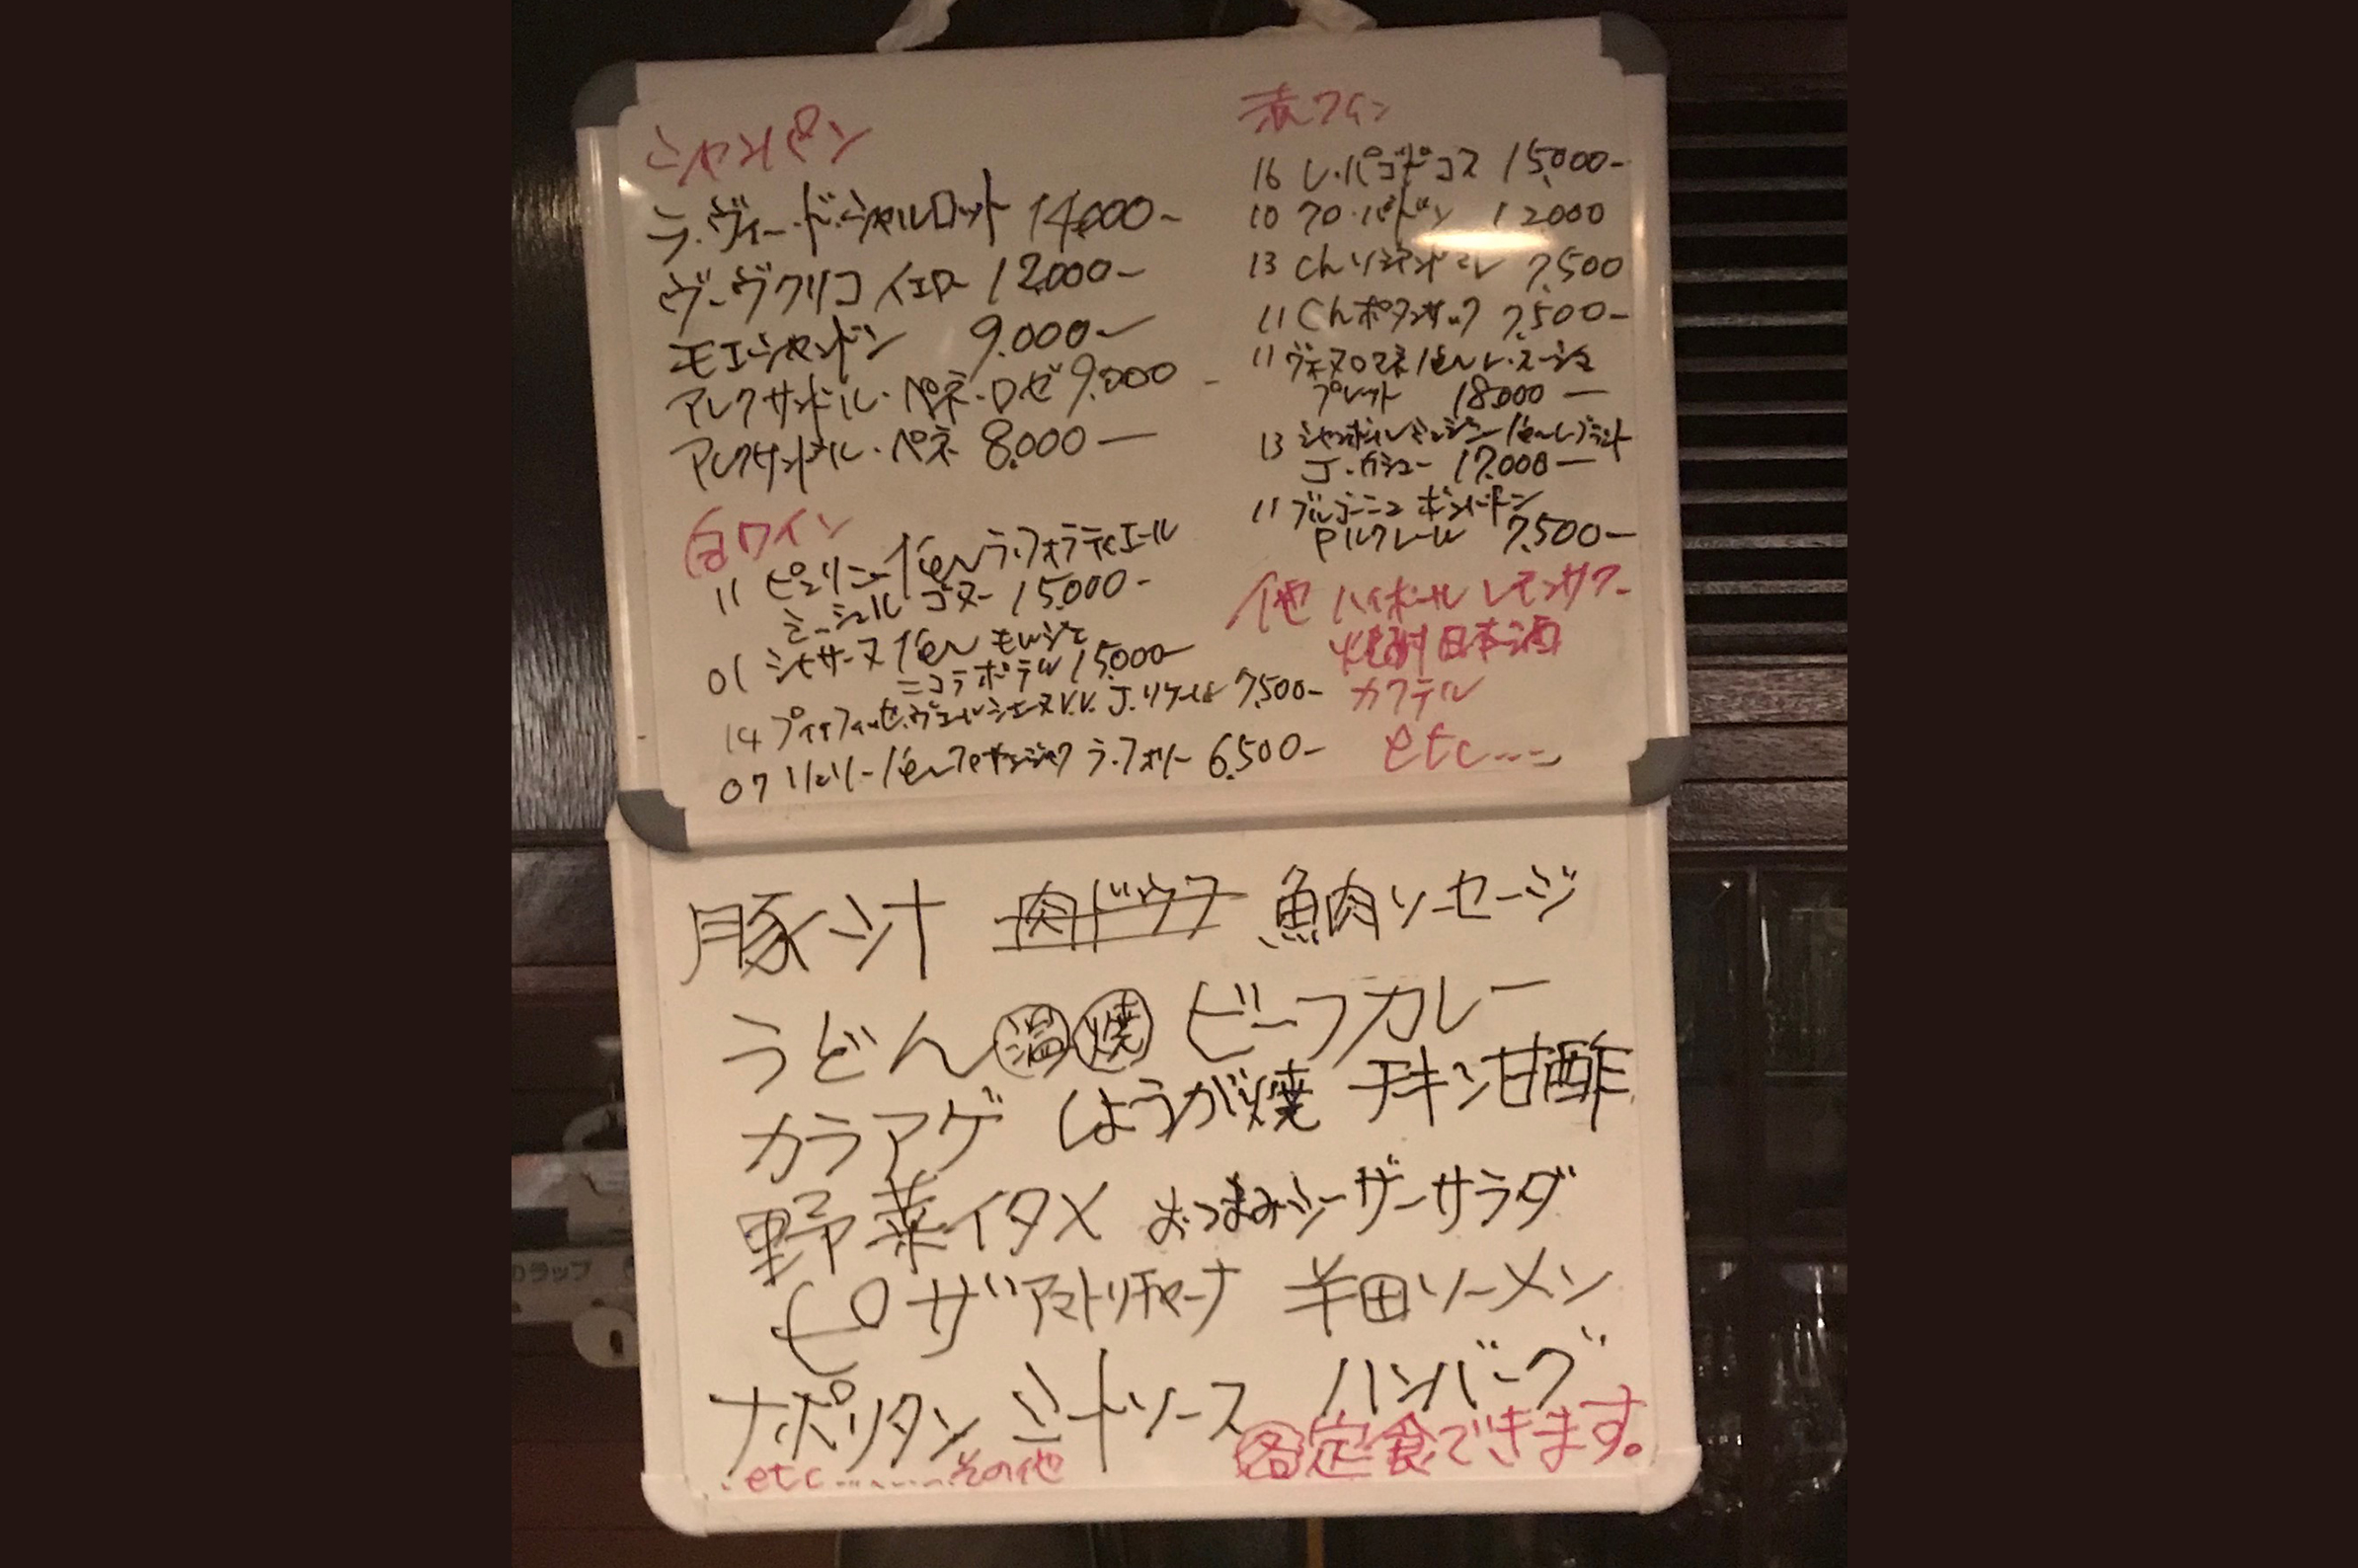 シャンパン
ラ・ヴィー・ド・シャルロット 14,000-
ヴーヴクリコ イエロー 12,000-
モエシャンドン 9,000-
アレクサンドル・ペネ・ロゼ 9,000-
アレクサンドル・ペネ 8,000-
白ワイン
11 ピュリニー 1er ラ・フォラティエール
ミッシェル コヌー 15,000-
01 シャサーヌ 1er モルジュ
ニコラ ポテル 15,000-
14 プイィフィッセ・ヴェルシェーヌ V.V. J. 7,500-
07 リュリー 1er ラ・フォリー 6,500-
赤ワイン
16 レ・パゴドコス 15,000-
10 プロ・パトゥン 12000
13 Ch 7,500
11 Ch ポタンサック 7,500-
11 ヴォーヌロマネ 1er レ・スーショ
18,000-
13 シャンボールミュジニー 1er
J. カシュー 17,000-
11 ブルゴーニュ ボンバトン
アルクレール 7,500-
他 ハイボール レモンサワー
焼酎 日本酒
カクテル
etc....
豚汁 肉ドウフ 魚肉ソーセージ
うどん 温 焼 ビーフカレー
カラアゲ しょうが焼 チキン甘酢
野菜イタメ おつまみシーザーサラダ
ピザ アマトリチャーナ 半田ソーメン
ナポリタン ミートソース ハンバーグ
etc........その他 各定食できます。
ラップ